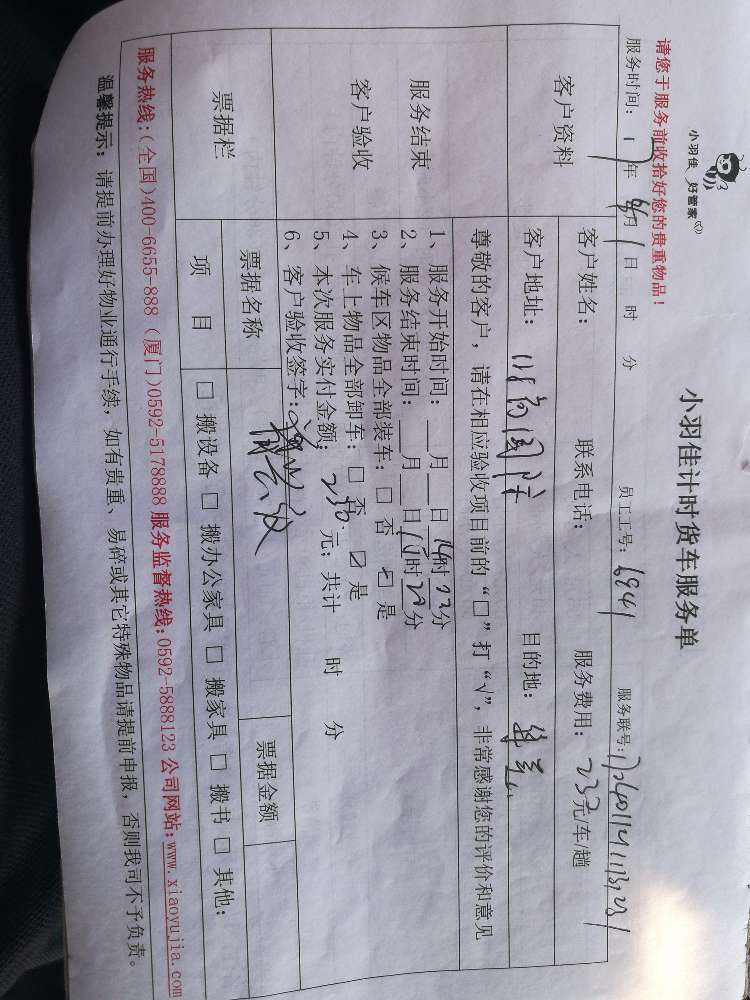 小羽佳 好管家
小羽佳计时货车服务单
请您于服务前收拾好您的贵重物品！
服务时间：17年 月1日 时 分 员工工号：6941 服务联号：
客户资料
客户姓名： 联系电话： 服务费用：230元/车/趟
客户地址： 目的地：
服务结束
客户验收
尊敬的客户，请在相应验收项目前的“□”打“√”，非常感谢您的评价和意见
1、服务开始时间： 月 日 14时 分
2、服务结束时间： 月 日 15时 22分
3、候车区物品全部装车：□ 否 ☑ 是
4、车上物品全部卸车：□ 否 ☑ 是
5、本次服务实付金额：230元；共计 时 分
6、客户验收签字：
票据栏
票据名称 票据金额
项 目 □ 搬设备 □ 搬办公家具 □ 搬家具 □ 搬书 □ 其他：
服务热线：(全国)400-6655-888 (厦门)0592-5178888 服务监督热线：0592-5888123 公司网站：www.xiaoyujia.com
温馨提示：请提前办理好物业通行手续，如有贵重、易碎或其它特殊物品请提前申报，否则我司不予负责。